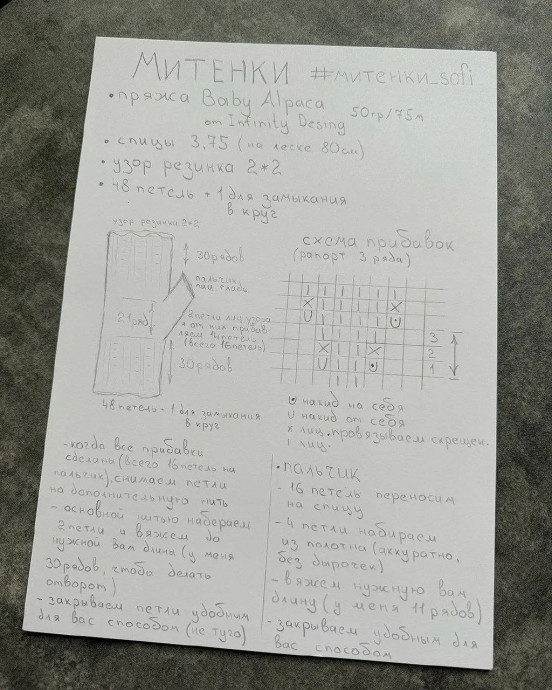 Митенки #митенки_sofi
• пряжа Baby Alpaca 50гр/75м
от Infinity Desing
• спицы 3,75 (на леске 80см)
• узор резинка 2*2
• 48 петель + 1 для замыкания
в круг
узор резинка 2*2
30 рядов
пальчик
лиц. гладь
21 ряд
2 петли лиц узора
и от них прибав
ляем 14 петель
(всего 16 петель)
30 рядов
48 петель + 1 для замыкания
в круг
схема прибавок
(рапорт 3 ряда)
3
2
1
накид на себя
U накид от себя
x лиц. провязываем скрещен.
I лиц.
- когда все прибавки
сделана (всего 16 петель на
пальчик), снимаем петли
на дополнительную нить
- основной нитью наберaем
2 петли и вяжем до
нужной вам длины (у меня
30 рядов, чтоба делать
отворот)
- закрываем петли удобным
для вас способом (не туго)
• пальчик
- 16 петель переносим
на спицу
- 4 петли набираем
из полотна (аккуратно,
без дырочек)
- вяжем нужную вам
длину (у меня 11 рядов)
- закрываем удобным для
вас способом